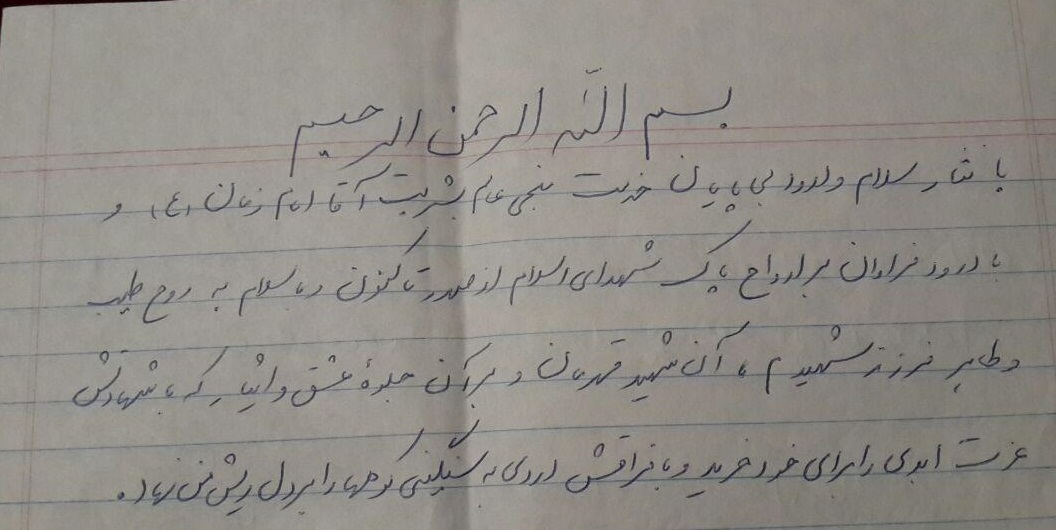 بسم الله الرحمن الرحیم
با نثار سلام و درود بی پایان خدمت منجی عالم بشریت آقا امام زمان (ع) و
با درود فراوان بر ارواح پاک شهدای اسلام از صدر تا کنون و با سلام به روح طیب
و طاهر فرزند شهیدم ، آن شهید قهرمان و بر آن جلوهٔ عشق و ایثار که با شهادتش
عزت ابدی را برای خود خرید و با فراقش دردی به سنگینی کوهها را بر دل ریش من نهاد.